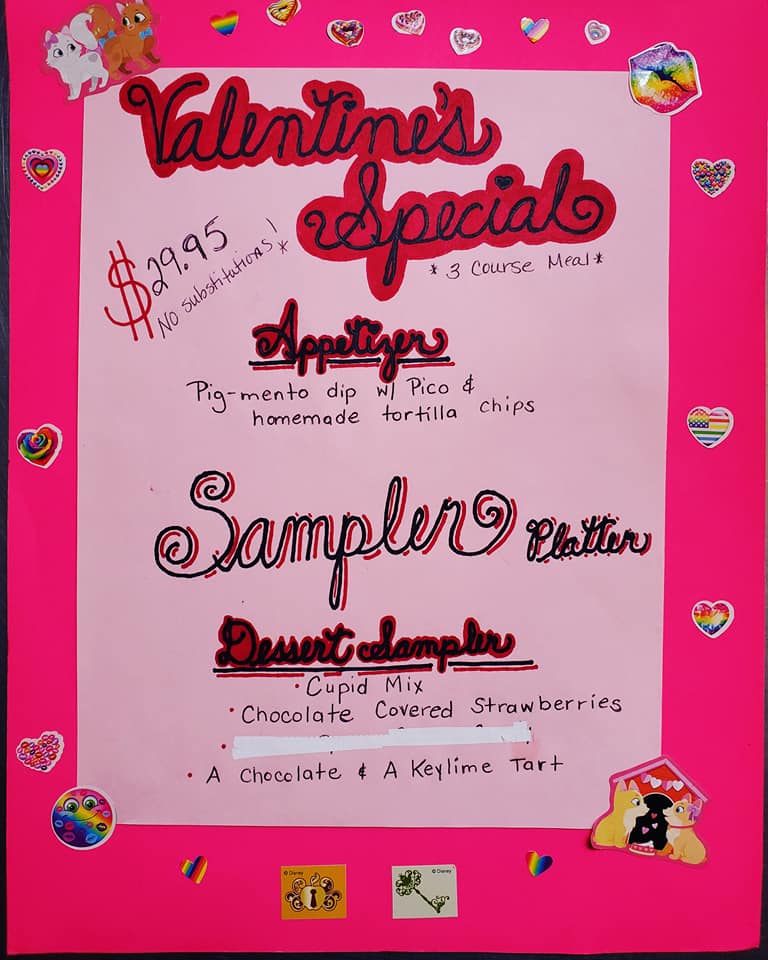 Valentine's
Special
$29.95
No substitutions! *
* 3 Course Meal *
Appetizer
Pig-mento dip w/ Pico &
homemade tortilla chips
Sampler Platter
Dessert Sampler
• Cupid Mix
• Chocolate Covered Strawberries
• A Chocolate & A Keylime Tart
© Disney
© Disney